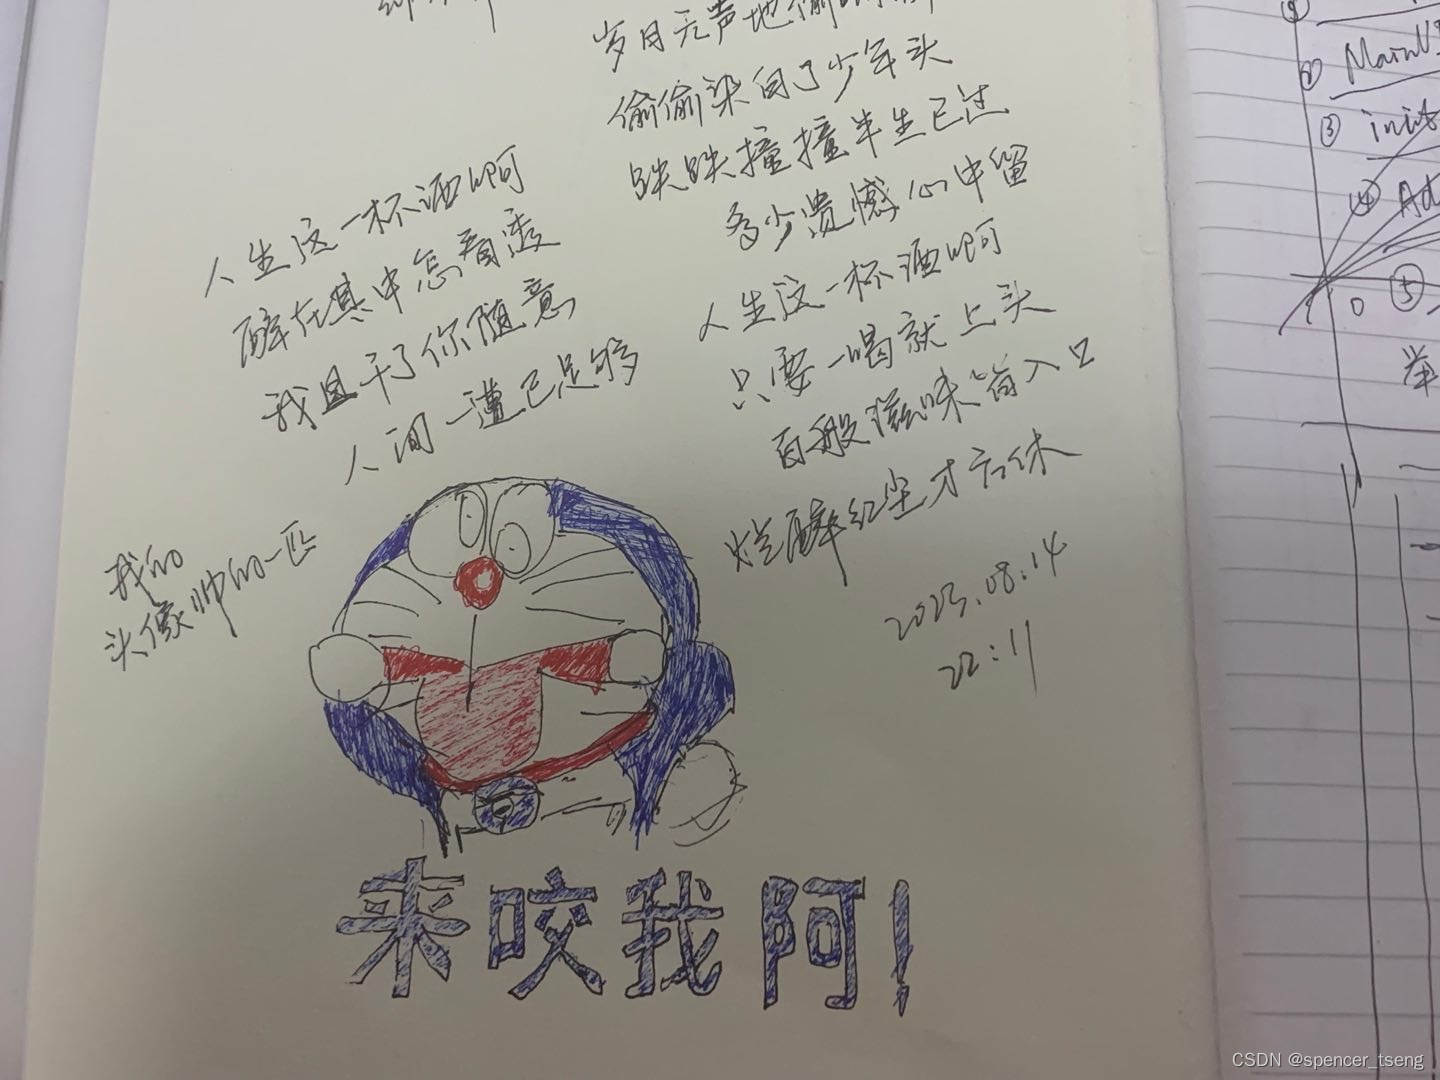 岁月无声地偷
偷偷染白了少年头
跌跌撞撞半生已过
多少遗憾心中留
人生这一杯酒啊
只要一喝就上头
百般滋味皆入口
烂醉红尘才方休
2023.08.14
22:11
人生这一杯酒啊
醉在其中怎看透
我且干了你随意
人间一遭已足够
我的
头像帅的一匹
来咬我阿!
②
③ init
④ Ad
0 ⑤
举
CSDN @spencer_tseng